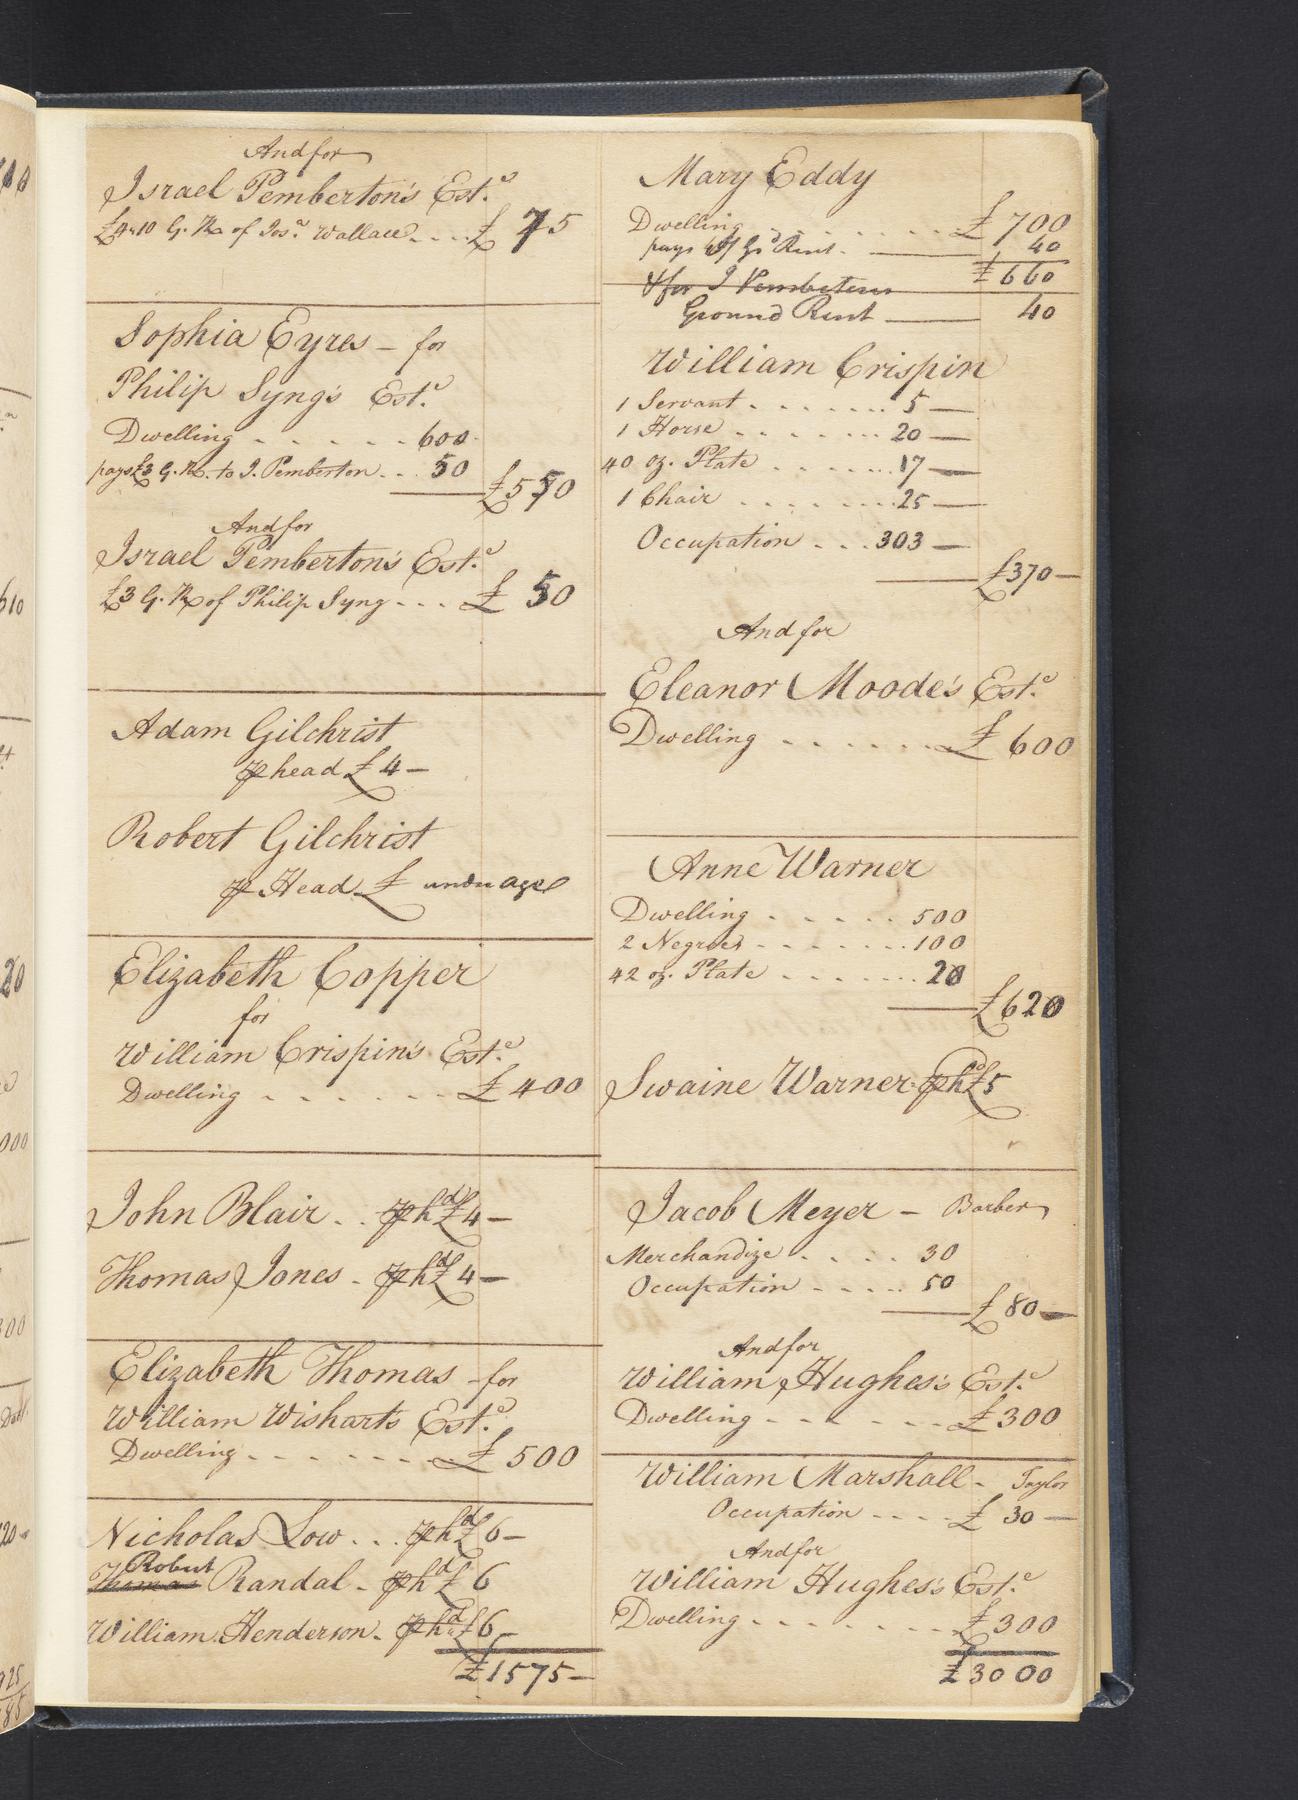 And for
Israel Pemberton's Est.e
£4.10 G. R. of Jos.a Wallace .... £ 75
Sophia Eyres – for
Philip Syng's Est.e
Dwelling - - - - - - 600
pays £3 G. R. to I. Pemberton - .. 50
£550
And for
Israel Pemberton's Est.e
£3 G. R of Philip Syng - - - £ 50
Adam Gilchrist
⅌ head £ 4 –
Robert Gilchrist
⅌ Head £ under age
Elizabeth Copper
for
William Crispin's Est.e
Dwelling - - - - - - £ 400
John Blair . . ⅌ hd £ 4 –
Thomas Jones - ⅌ hd £ 4 –
Elizabeth Thomas - for
William Wishart's Est.e
Dwelling - - - - - - - £ 500
Nicholas Low ... ⅌ hd £ 6 –
Robert
Thomas Randal - ⅌ hd £ 6
William Henderson - ⅌ hd £ 6 –
£1575 –
Mary Eddy
Dwelling - - - - - - £ 700
pays Gd Rent - 40
£ 660
& for I Pemberton
Ground Rent 40
William Crispin
1 Servant - - - - - - - 5 —
1 Horse - - - - - - - 20 —
40 oz. Plate - - - - - - - 17 —
1 Chair - - - - - - - 25 —
Occupation - - - 303 —
£370 –
And for
Eleanor Moode's Est.e
Dwelling - - - - - - - £ 600
Anne Warner
Dwelling - - - - - - 500
2 Negroes - - - - - - - 100
42 oz. Plate - - - - - - - 20
£620
Swaine Warner - ⅌ hd £5
Jacob Meyer – Barber
Merchandize - - - - - 30
Occupation - - - - - 50
£ 80 –
And for
William Hughes's Est.e
Dwelling - - - - - - - £300
William Marshall - Taylor
Occupation - - - - £ 30 –
And for
William Hughes's Est.e
Dwelling - - - - - - - - £300
£3000